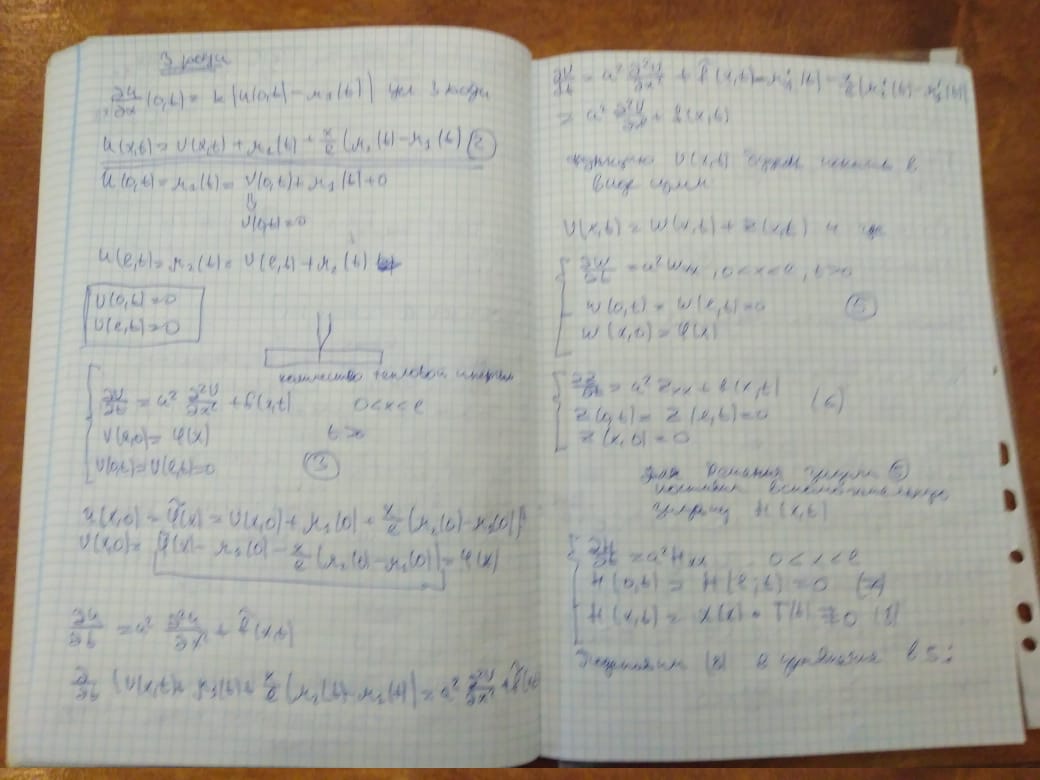 3 рода
∂u/∂x (0,t) = h [u(0,t) − μ₁(t)] усл 3 рода
u(x,t) = v(x,t) + μ₁(t) + x/l (μ₂(t) − μ₁(t)) (2)
u(0,t) = μ₁(t) = v(0,t) + μ₁(t) + 0
⇓
v(0,t) = 0
u(l,t) = μ₂(t) = v(l,t) + μ₂(t)
v(0,t) = 0
v(l,t) = 0
количество тепловой энергии
∂v/∂t = a² ∂²v/∂x² + f(x,t) 0<x<l
v(x,0) = φ(x) t>0
v(0,t) = v(l,t) = 0 (3)
u(x,0) = φ̃(x) = v(x,0) + μ₁(0) + x/l (μ₂(0) − μ₁(0))
v(x,0) = φ̃(x) − μ₁(0) − x/l (μ₂(0) − μ₁(0)) = φ(x)
∂u/∂t = a² ∂²u/∂x² + f̃(x,t)
∂/∂t (v(x,t) + μ₁(t) + x/l (μ₂(t) − μ₁(t)) = a² ∂²v/∂x² + f̃(x,t)
∂v/∂t = a² ∂²v/∂x² + f̃(x,t) − μ₁'(t) − x/l (μ₂'(t) − μ₁'(t))
= a² ∂²v/∂x² + f(x,t)
функцию v(x,t) будем искать в
виде суммы
v(x,t) = w(x,t) + z(x,t) и где
∂w/∂t = a² wₓₓ, 0<x<l, t>0
w(0,t) = w(l,t) = 0 (5)
w(x,0) = φ(x)
∂z/∂t = a² zₓₓ + f(x,t)
z(0,t) = z(l,t) = 0 (6)
z(x,0) = 0
для решения задачи (5)
поставим вспомогательную
задачу H(x,t)
∂H/∂t = a² Hₓₓ 0<x<l
H(0,t) = H(l,t) = 0 (7)
H(x,t) = X(x) · T(t) ≠ 0 (8)
Подставим (8) в уравнения в 5: